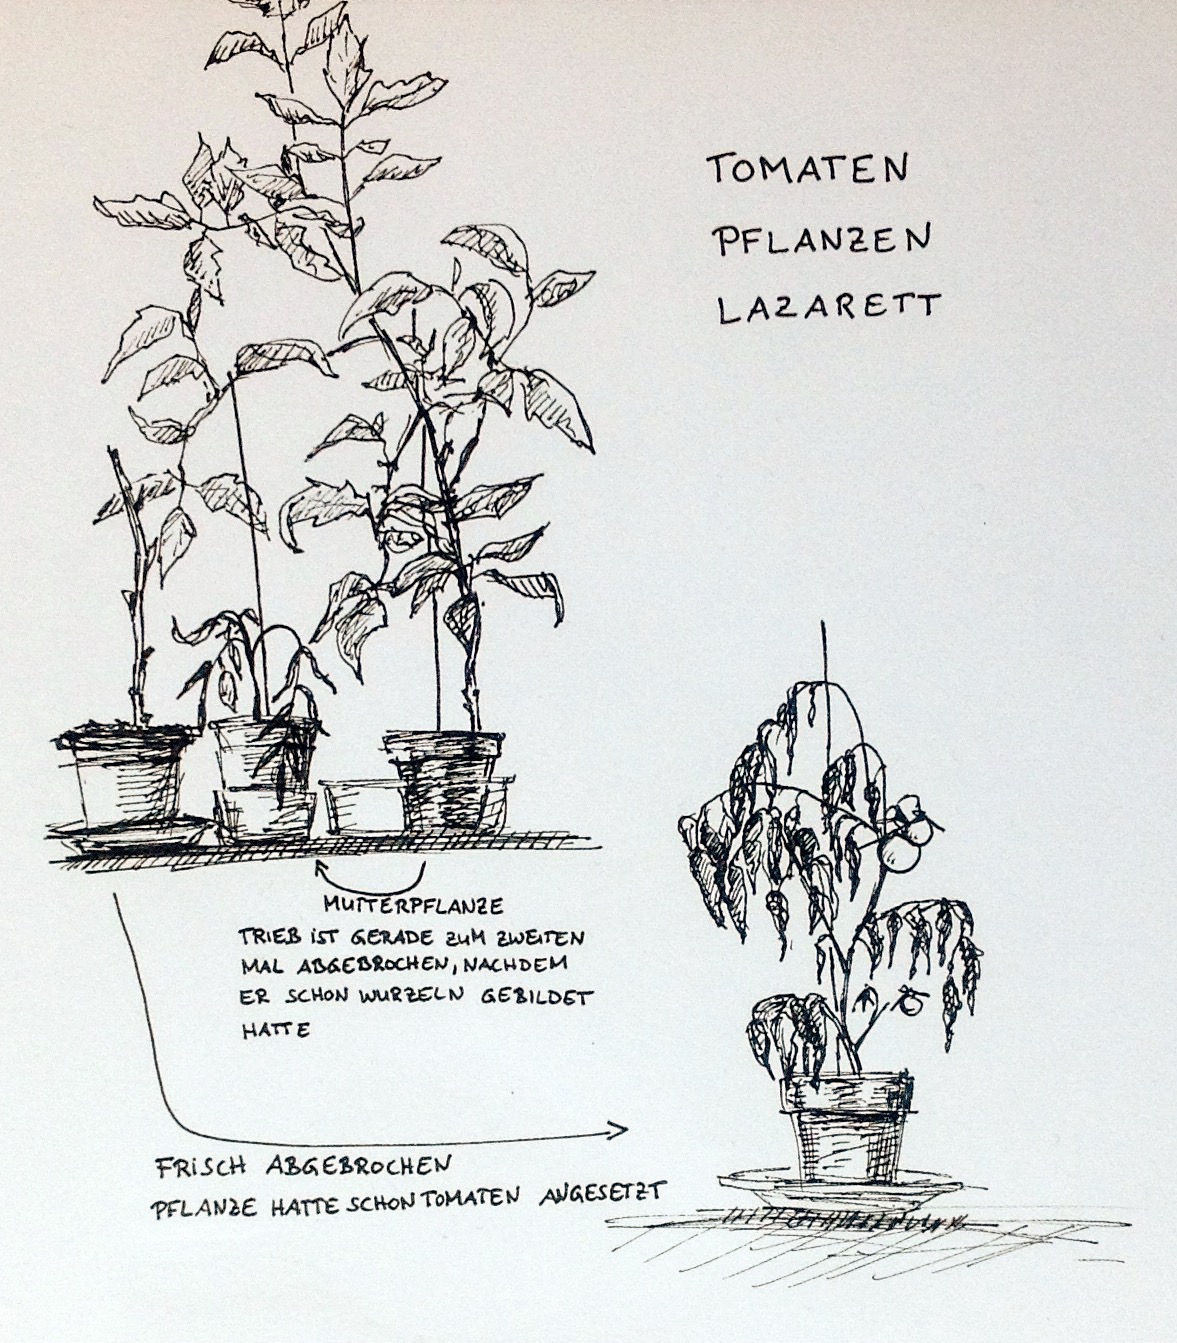 TOMATEN
PFLANZEN
LAZARETT
MUTTERPFLANZE
TRIEB IST GERADE ZUM ZWEITEN
MAL ABGEBROCHEN, NACHDEM
ER SCHON WURZELN GEBILDET
HATTE
FRISCH ABGEBROCHEN
PFLANZE HATTE SCHON TOMATEN ANGESETZT